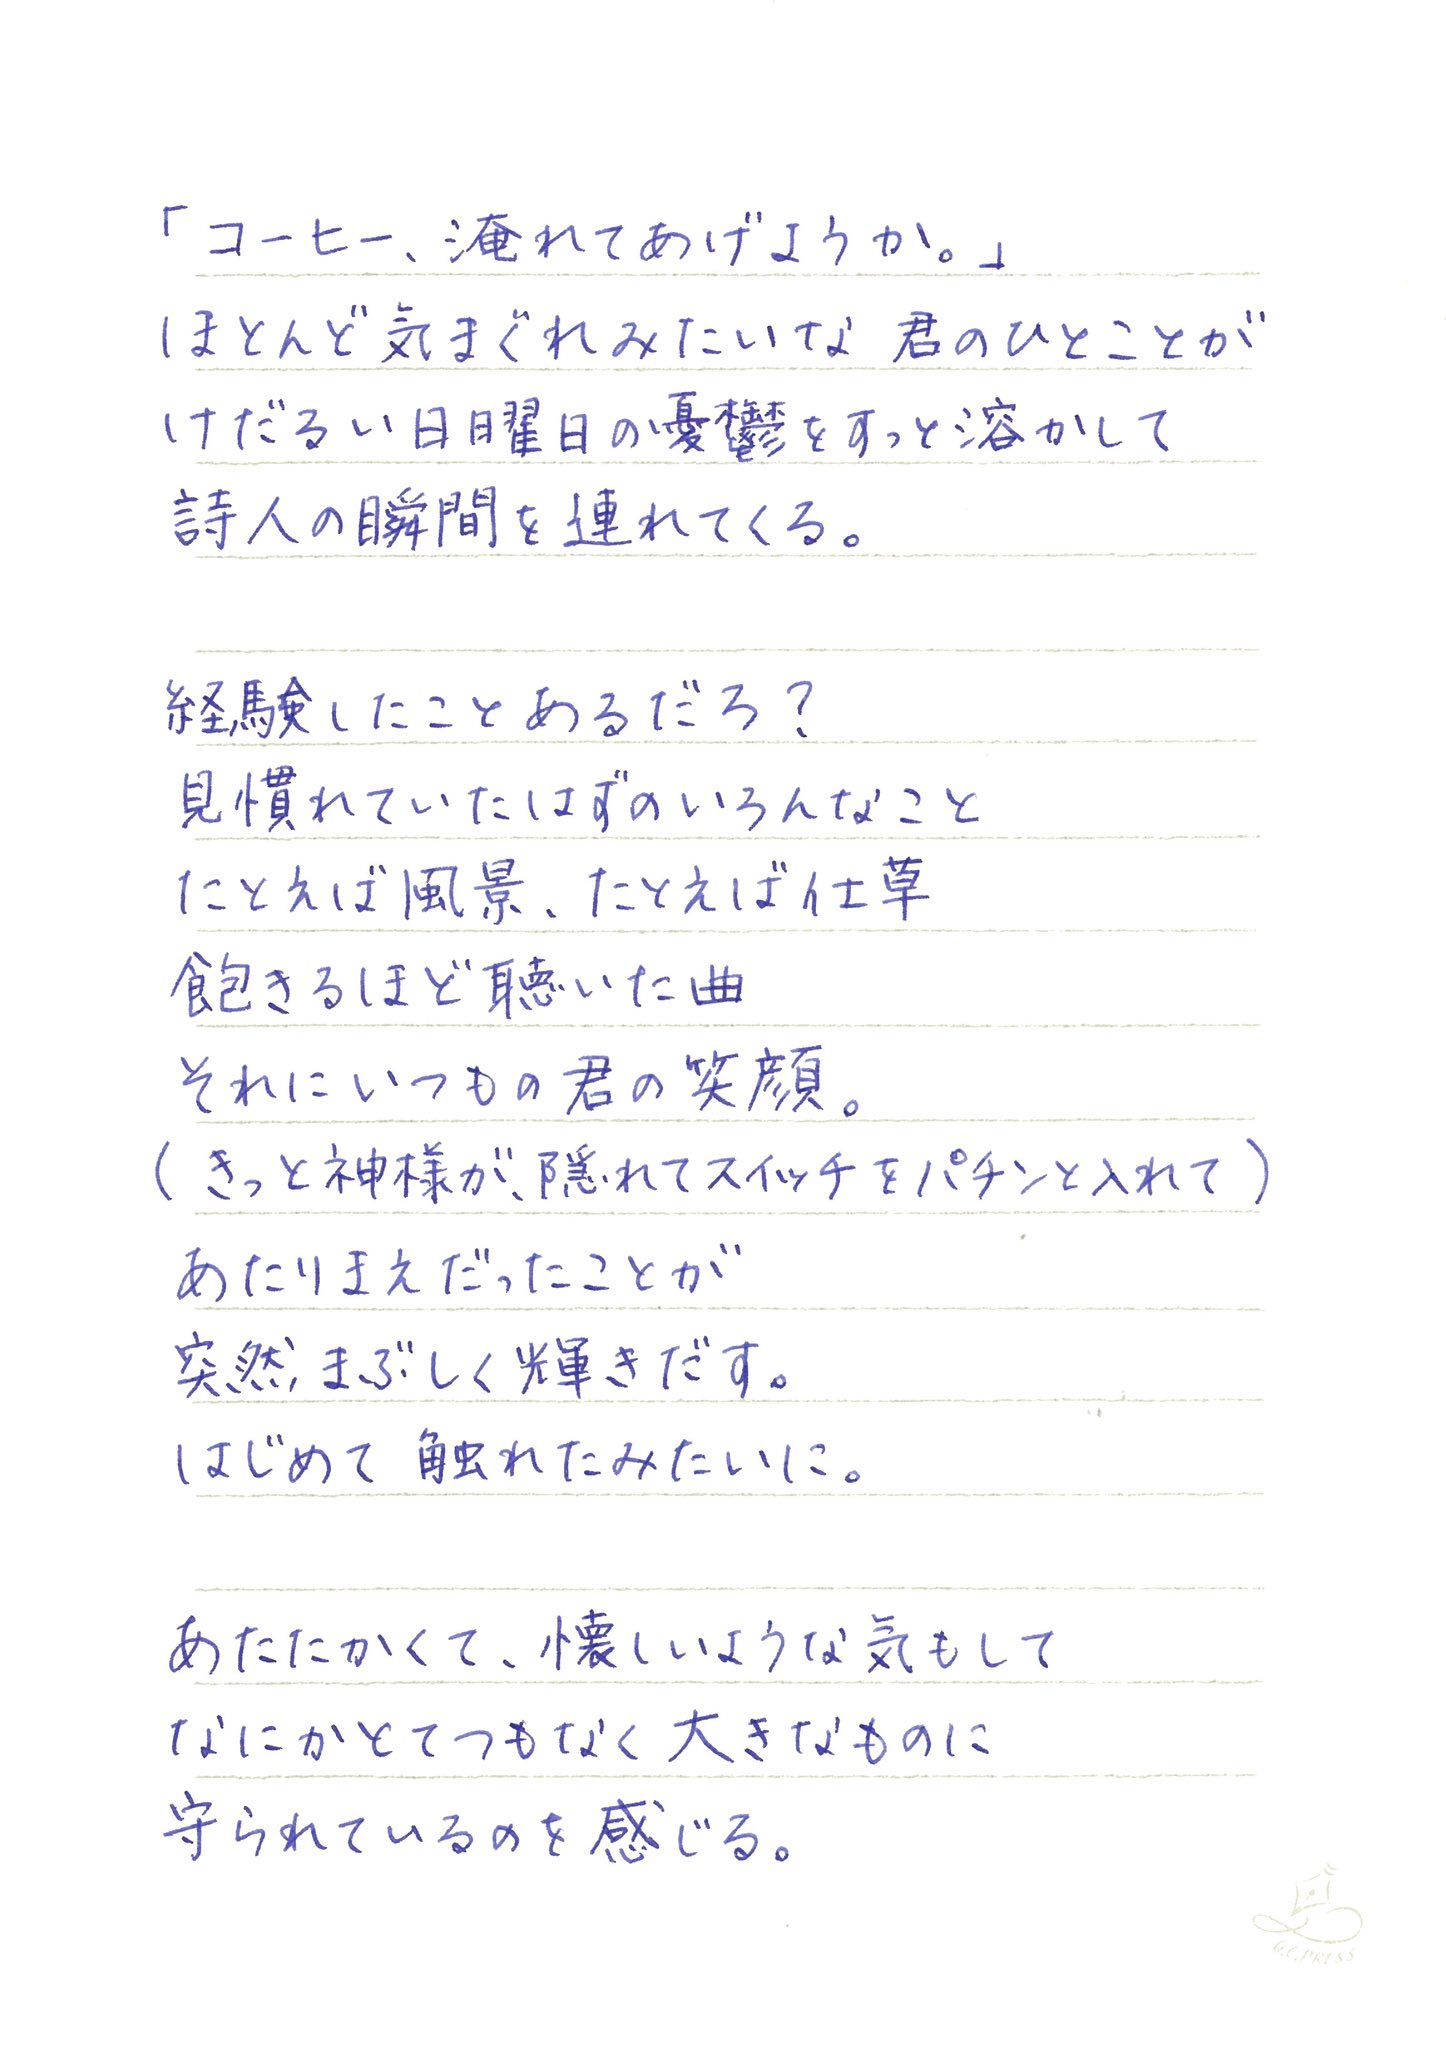 「コーヒー、淹れてあげようか。」
ほとんど気まぐれみたいな 君のひとことが
けだるい日曜日の憂鬱をすっと溶かして
詩人の瞬間を連れてくる。
経験したことあるだろ？
見慣れていたはずのいろんなこと
たとえば風景、たとえば仕草
飽きるほど聴いた曲
それにいつもの君の笑顔。
(きっと神様が、隠れてスイッチをパチンと入れて)
あたりまえだったことが
突然まぶしく輝きだす。
はじめて 触れたみたいに。
あたたかくて、懐しいような気もして
なにかとてつもなく大きなものに
守られているのを感じる。
G.C.PRESS